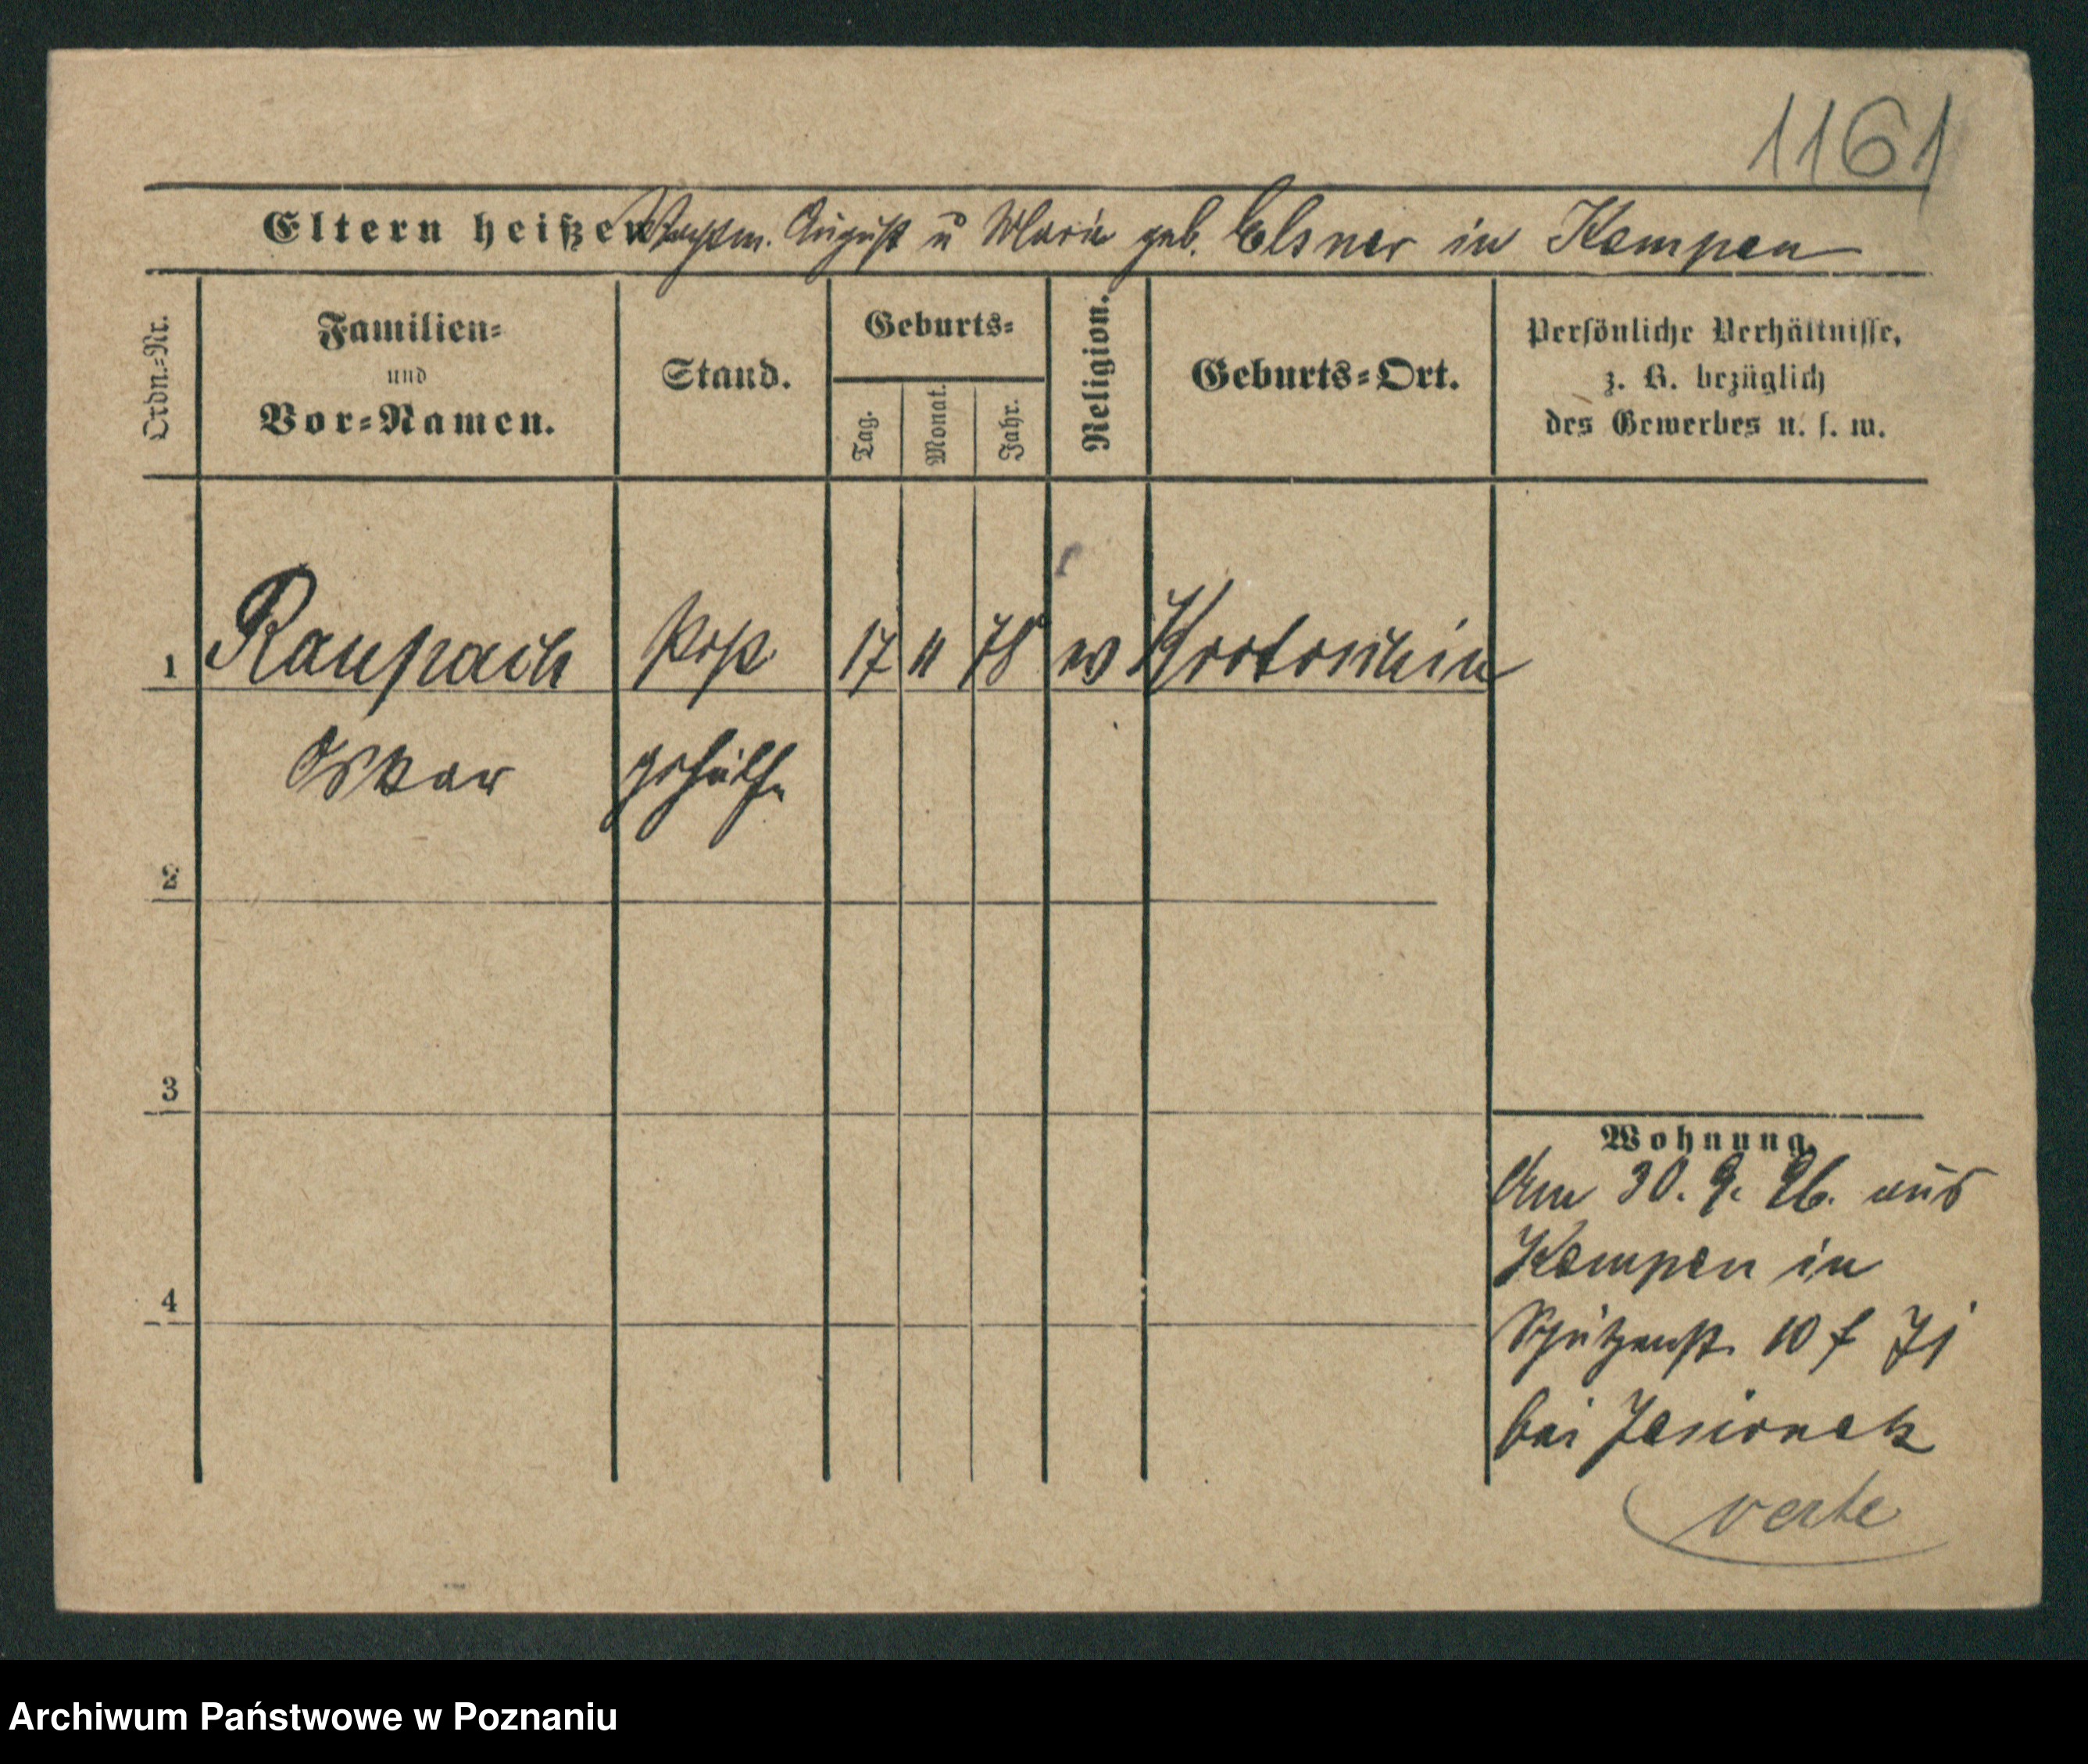 1161
Eltern heißen Wachtm. August u Marie geb. Elsner in Kempen
Ordn.=Nr.
Familien=
und
Vor=Namen.
Stand.
Geburts=
Tag.
Monat.
Jahr.
Religion.
Geburts=Ort.
Persönliche Verhältnisse,
z. B. bezüglich
des Gewerbes u. s. w.
1 Raupach Post 17 11 78 ev Krotoschin
Oskar gehülfe
2
3
4
Wohnung.
Am 30. 9. 96. aus
Kempen in
Schützenstr. 10 f
bei Jesionek
verte
Archiwum Państwowe w Poznaniu